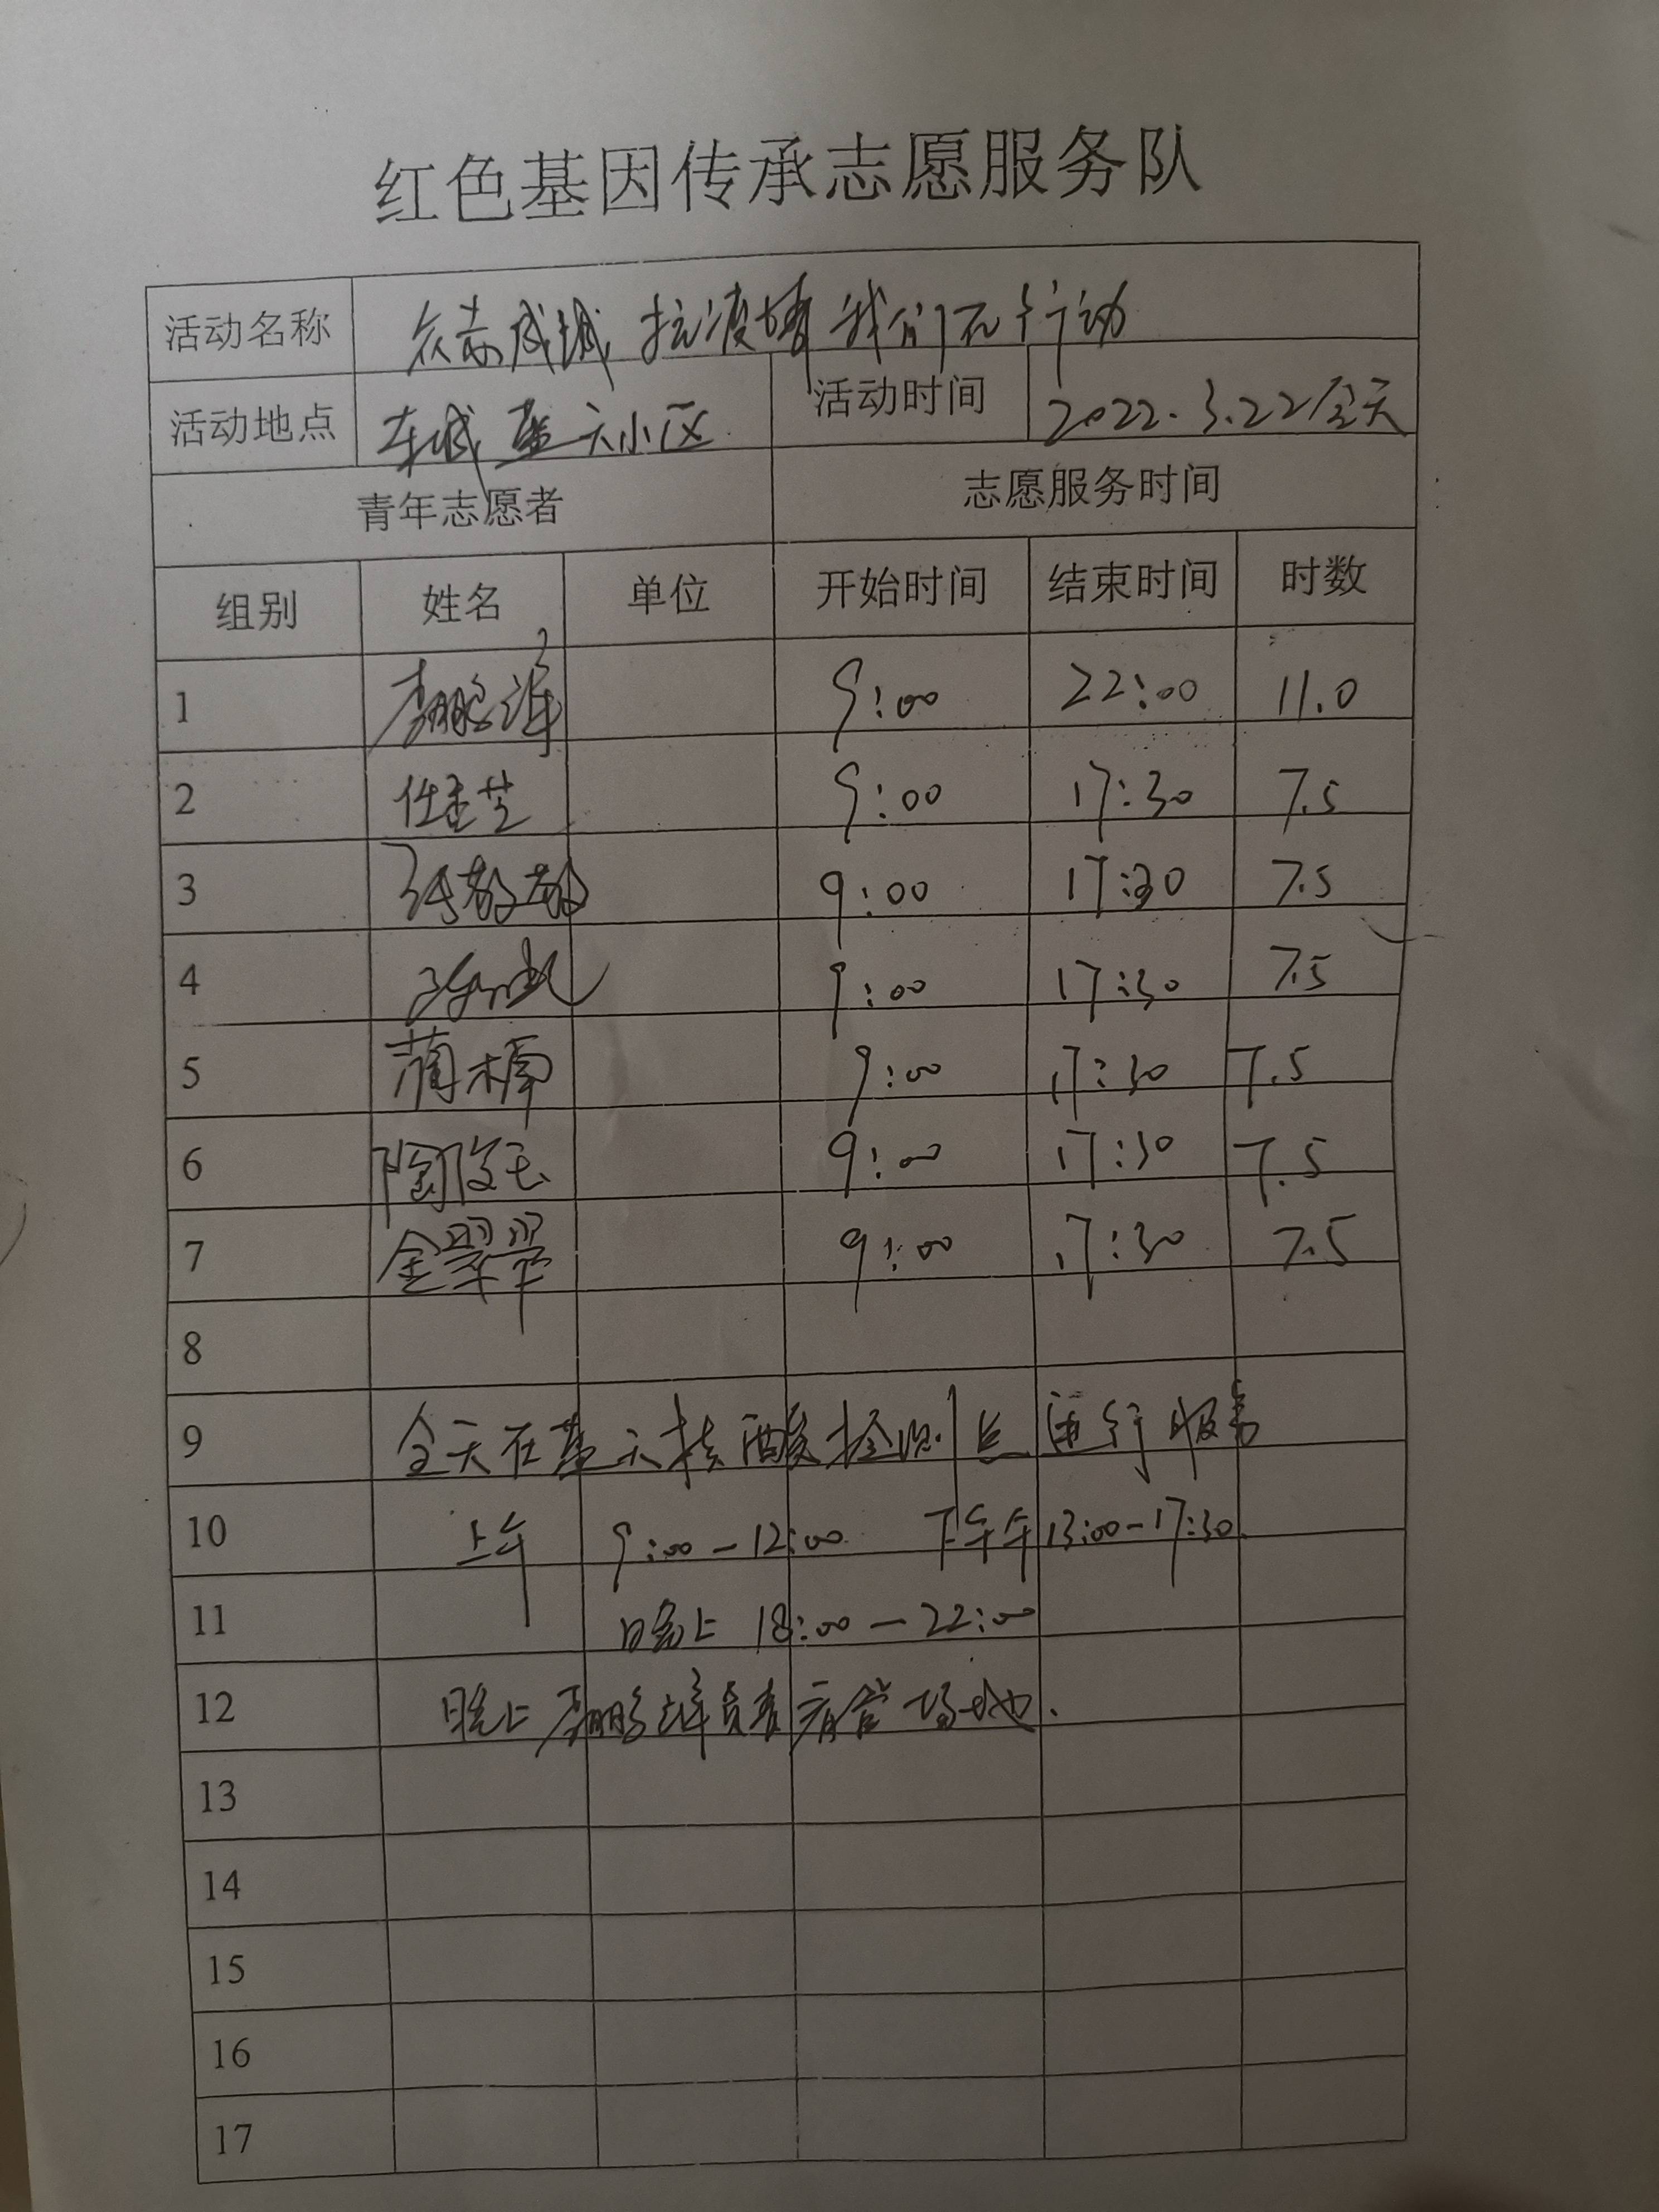 红色基因传承志愿服务队
活动名称 众志成城 抗疫情 我们在行动
活动地点 东城 小区 活动时间 2022.3.22全天
青年志愿者 志愿服务时间
组别 姓名 单位 开始时间 结束时间 时数
1 李鹏 9:00 22:00 11.0
2 任芝 9:00 17:30 7.5
3 9:00 17:30 7.5
4 9:00 17:30 7.5
5 蔺楠 9:00 17:30 7.5
6 陶 9:00 17:30 7.5
7 金翠翠 9:00 17:30 7.5
8
9 全天在 核酸检测点进行服务
10 上午 9:00-12:00 下午 13:00-17:30
11 晚上 18:00-22:00
12 晚上李鹏 负责看管场地.
13
14
15
16
17